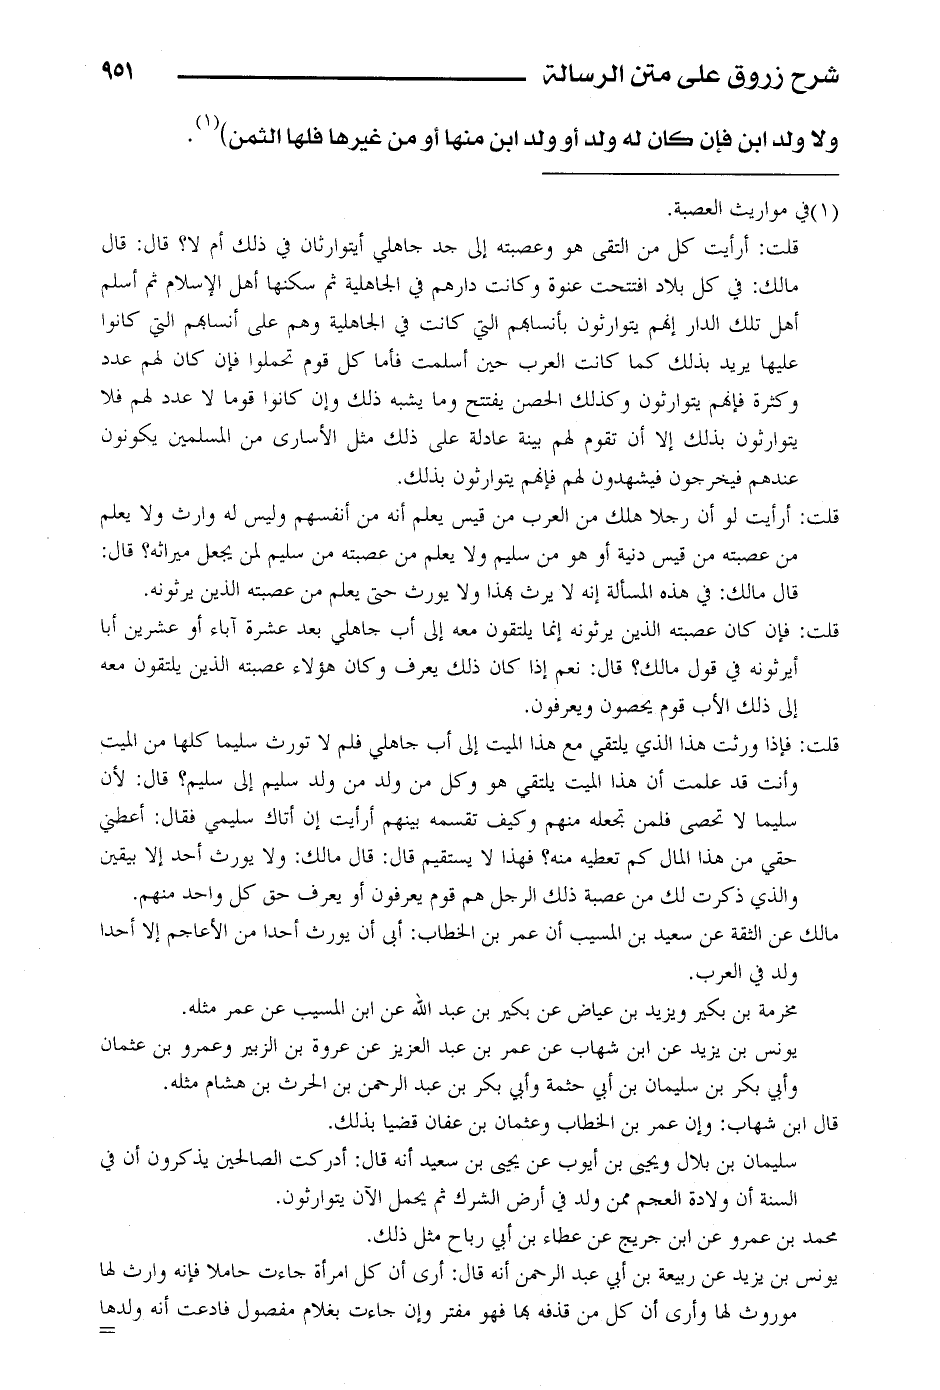 شرح زروق على متن الرسالة ٩٥١
ولا ولد ابن فإن كان له ولد أو ولد ابن منها أو من غيرها فلها الثمن)(١).
(١) في مواريث العصبة.
قلت: أرأيت كل من التقى هو وعصبته إلى جد جاهلي أيتوارثان في ذلك أم لا؟ قال: قال
مالك: في كل بلاد افتتحت عنوة وكانت دارهم في الجاهلية ثم سكنها أهل الإسلام ثم أسلم
أهل تلك الدار إنهم يتوارثون بأنسابهم التي كانت في الجاهلية وهم على أنسابهم التي كانوا
عليها يريد بذلك كما كانت العرب حين أسلمت فأما كل قوم تحملوا فإن كان لهم عدد
وكثرة فإنهم يتوارثون وكذلك الحصن يفتتح وما يشبه ذلك وإن كانوا قوما لا عدد لهم فلا
يتوارثون بذلك إلا أن تقوم لهم بينة عادلة على ذلك مثل الأسارى من المسلمين يكونون
عندهم فيخرجون فيشهدون لهم فإنهم يتوارثون بذلك.
قلت: أرأيت لو أن رجلا هلك من العرب من قيس يعلم أنه من أنفسهم وليس له وارث ولا يعلم
من عصبته من قيس دنية أو هو من سليم ولا يعلم من عصبته من سليم لمن يجعل ميراثه؟ قال:
قال مالك: في هذه المسألة إنه لا يرث بهذا ولا يورث حتى يعلم من عصبته الذين يرثونه.
قلت: فإن كان عصبته الذين يرثونه إنما يلتقون معه إلى أب جاهلي بعد عشرة آباء أو عشرين أبا
أيرثونه في قول مالك؟ قال: نعم إذا كان ذلك يعرف وكان هؤلاء عصبته الذين يلتقون معه
إلى ذلك الأب قوم يحصون ويعرفون.
قلت: فإذا ورثت هذا الذي يلتقي مع هذا الميت إلى أب جاهلي فلم لا تورث سليما كلها من الميت
وأنت قد علمت أن هذا الميت يلتقي هو وكل من ولد من ولد سليم إلى سليم؟ قال: لأن
سليما لا تحصى فلمن تجعله منهم وكيف تقسمه بينهم أرأيت إن أتاك سليمي فقال: أعطني
حقي من هذا المال كم تعطيه منه؟ فهذا لا يستقيم قال: قال مالك: ولا يورث أحد إلا بيقين
والذي ذكرت لك من عصبة ذلك الرجل هم قوم يعرفون أو يعرف حق كل واحد منهم.
مالك عن الثقة عن سعيد بن المسيب أن عمر بن الخطاب: أبى أن يورث أحدا من الأعاجم إلا أحدا
ولد في العرب.
مخرمة بن بكير ويزيد بن عياض عن بكير بن عبد الله عن ابن المسيب عن عمر مثله.
يونس بن يزيد عن ابن شهاب عن عمر بن عبد العزيز عن عروة بن الزبير وعمرو بن عثمان
وأبي بكر بن سليمان بن أبي حثمة وأبي بكر بن عبد الرحمن بن الحرث بن هشام مثله.
قال ابن شهاب: وإن عمر بن الخطاب وعثمان بن عفان قضيا بذلك.
سليمان بن بلال ويحيى بن أيوب عن يحيى بن سعيد أنه قال: أدركت الصالحين يذكرون أن في
السنة أن ولادة العجم ممن ولد في أرض الشرك ثم يحمل الآن يتوارثون.
محمد بن عمرو عن ابن جريج عن عطاء بن أبي رباح مثل ذلك.
يونس بن يزيد عن ربيعة بن أبي عبد الرحمن أنه قال: أرى أن كل امرأة جاءت حاملا فإنه وارث لها
موروث لها وأرى أن كل من قذفه بها فهو مفتر وإن جاءت بغلام مفصول فادعت أنه ولدها
=